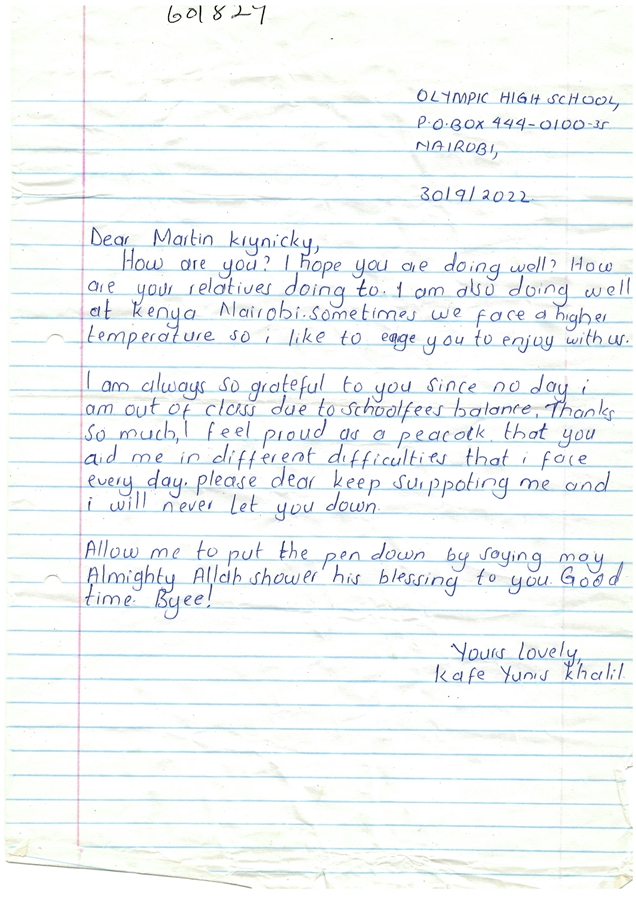 601827
OLYMPIC HIGH SCHOOL,
P.O.BOX 444-0100-35
NAIROBI,
30/9/2022
Dear Martin Krynicky,
How are you? I hope you are doing well? How
are your relatives doing to. I am also doing well
at Kenya Nairobi. Sometimes we face a higher
temperature so i like to eage you to enjoy with us.
I am always so grateful to you since no day i
am out of class due to schoolfees balance. Thanks
so much, I feel proud as a peacock that you
aid me in different difficulties that i face
every day. please dear keep surppoting me and
i will never let you down.
Allow me to put the pen down by saying may
Almighty Allah shower his blessing to you. Good
time. Byee!
Yours lovely,
Kafe Yunis Khalil